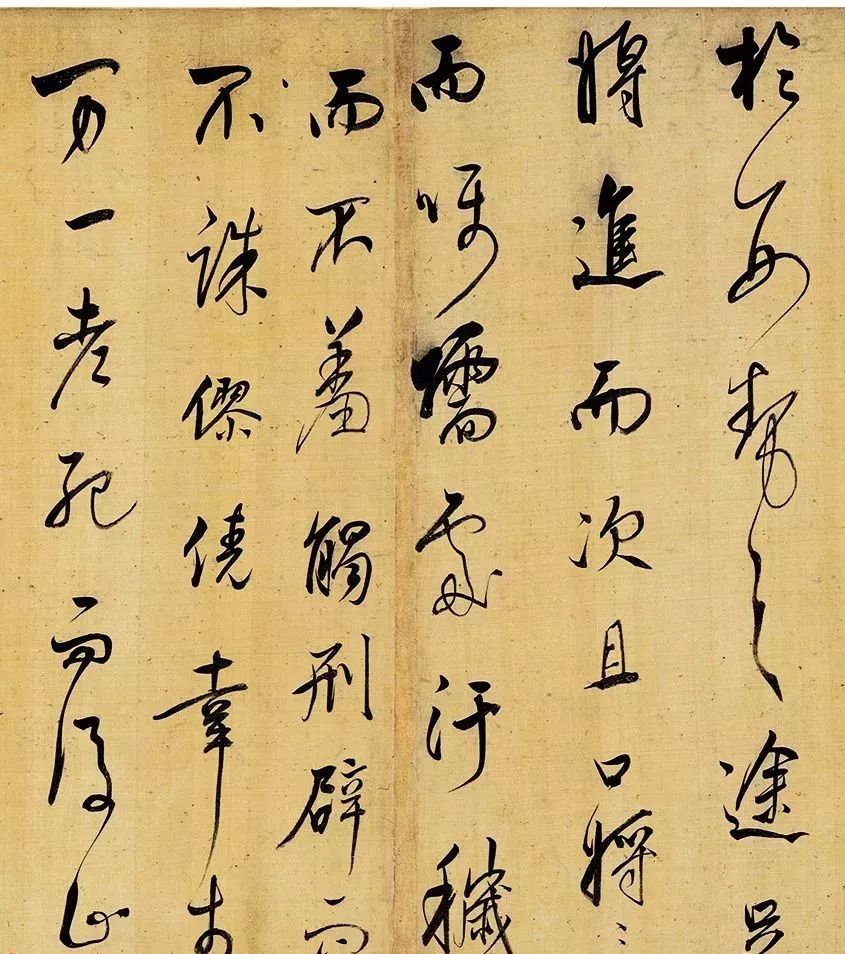 於勢之途足
將進而次且口將
而囁嚅處汙穢
而不羞觸刑辟而
不誅僇僥幸於
万一老死而後止